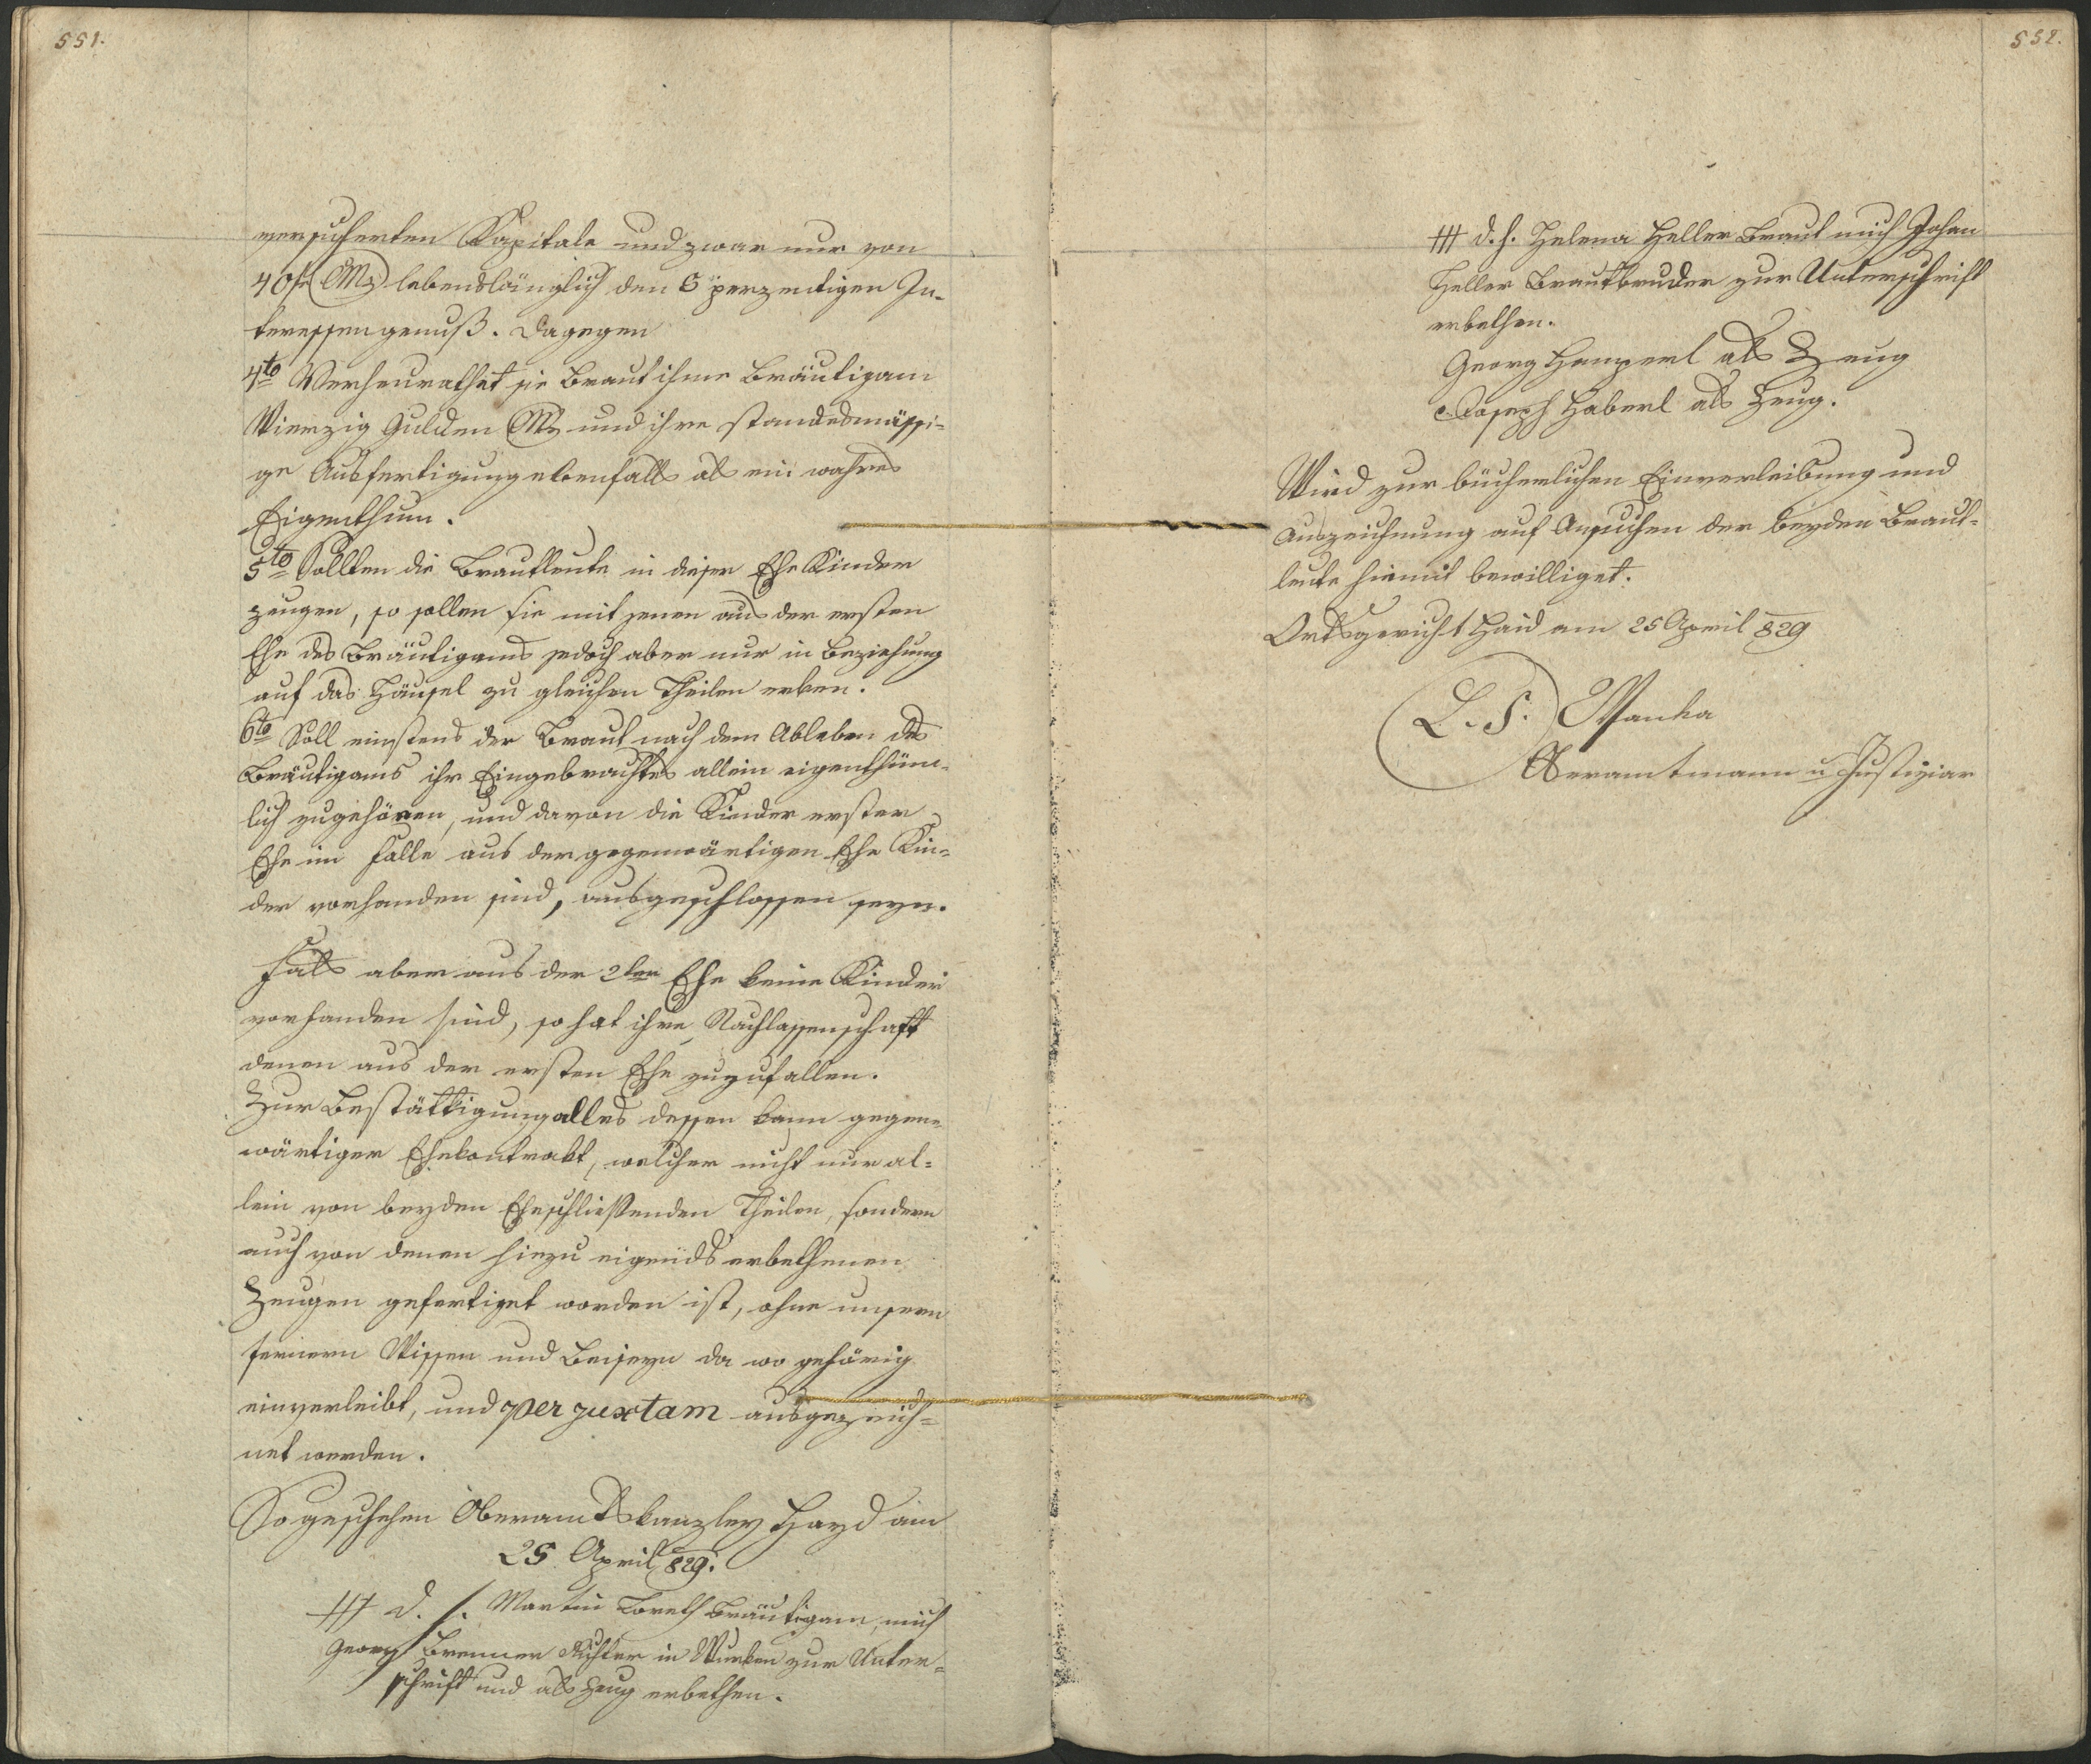 551.
versicherten Kapitale und zwar nur von
40 fr CMz lebenslänglich den 5 perzentigen In-
teressengenuß. Dagegen
4to Verheurathet sie Braut ihme Bräutigam
Vierzig Gulden CMz und ihre standesmässi-
ge Ausfertigung ebenfalls als ein wahres
Eigenthum.
5to Sollten die Brautleute in dieser Ehe Kinder
zeugen, so sollen sie mit jenen aus der ersten
Ehe des Bräutigams jedoch aber nur in Beziehung
auf das Häusel zu gleichen Theilen erben.
6to Soll einstens der Braut nach dem Ableben des
Bräutigams ihr Eingebrachtes allein eigenthüm-
lich zugehören, und davon die Kinder erster
Ehe im Falle aus der gegenwärtigen Ehe Kin-
der vorhanden sind, ausgeschlossen seyn.
Falls aber aus der 2ten Ehe keine Kinder
vorhanden sind, so hat ihre Nachlassenschaft
denen aus der ersten Ehe zuzufallen.
Zur Bestättigung alles dessen kann gegen-
wärtiger Ehekontrakt, welcher nicht nur al-
lein von beyden Eheschließenden Theilen, sondern
auch von denen hiezu eigends erbethenen
Zeugen gefertiget worden ist, ohne unsern
fernern Wissen und Beiseyn da wo gehörig
einverleibt, und per juxtam ausgezeich-
net werden.
So geschehen Oberamtskanzley Hayd am
25 April 829.
+++ d. h. Martin Loreth Bräutigam, mich
Georg Brenner Richter in Wurken zur Unter-
schrift und als Zeug erbethen.
552.
+++ d. h. Helena Heller Braut mich Johan
Heller Brautbruder zur Unterschrift
erbethen.
Georg Hamperl als Zeug
Joseph Haberl als Zeug.
Wird zur bücherlichen Einverleibung und
Auszeichnung auf Ansuchen der beyden Braut-
leute hiemit bewilliget.
Ortsgericht Haid am 25 April 829
L. S. Wanka
Oberamtmann u Justiziar